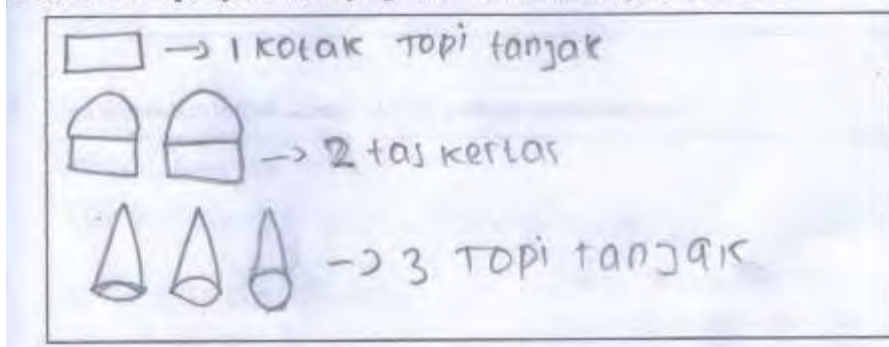 → 1 kotak Topi tanjak
→ 2 tas kertas
→ 3 Topi tanjak